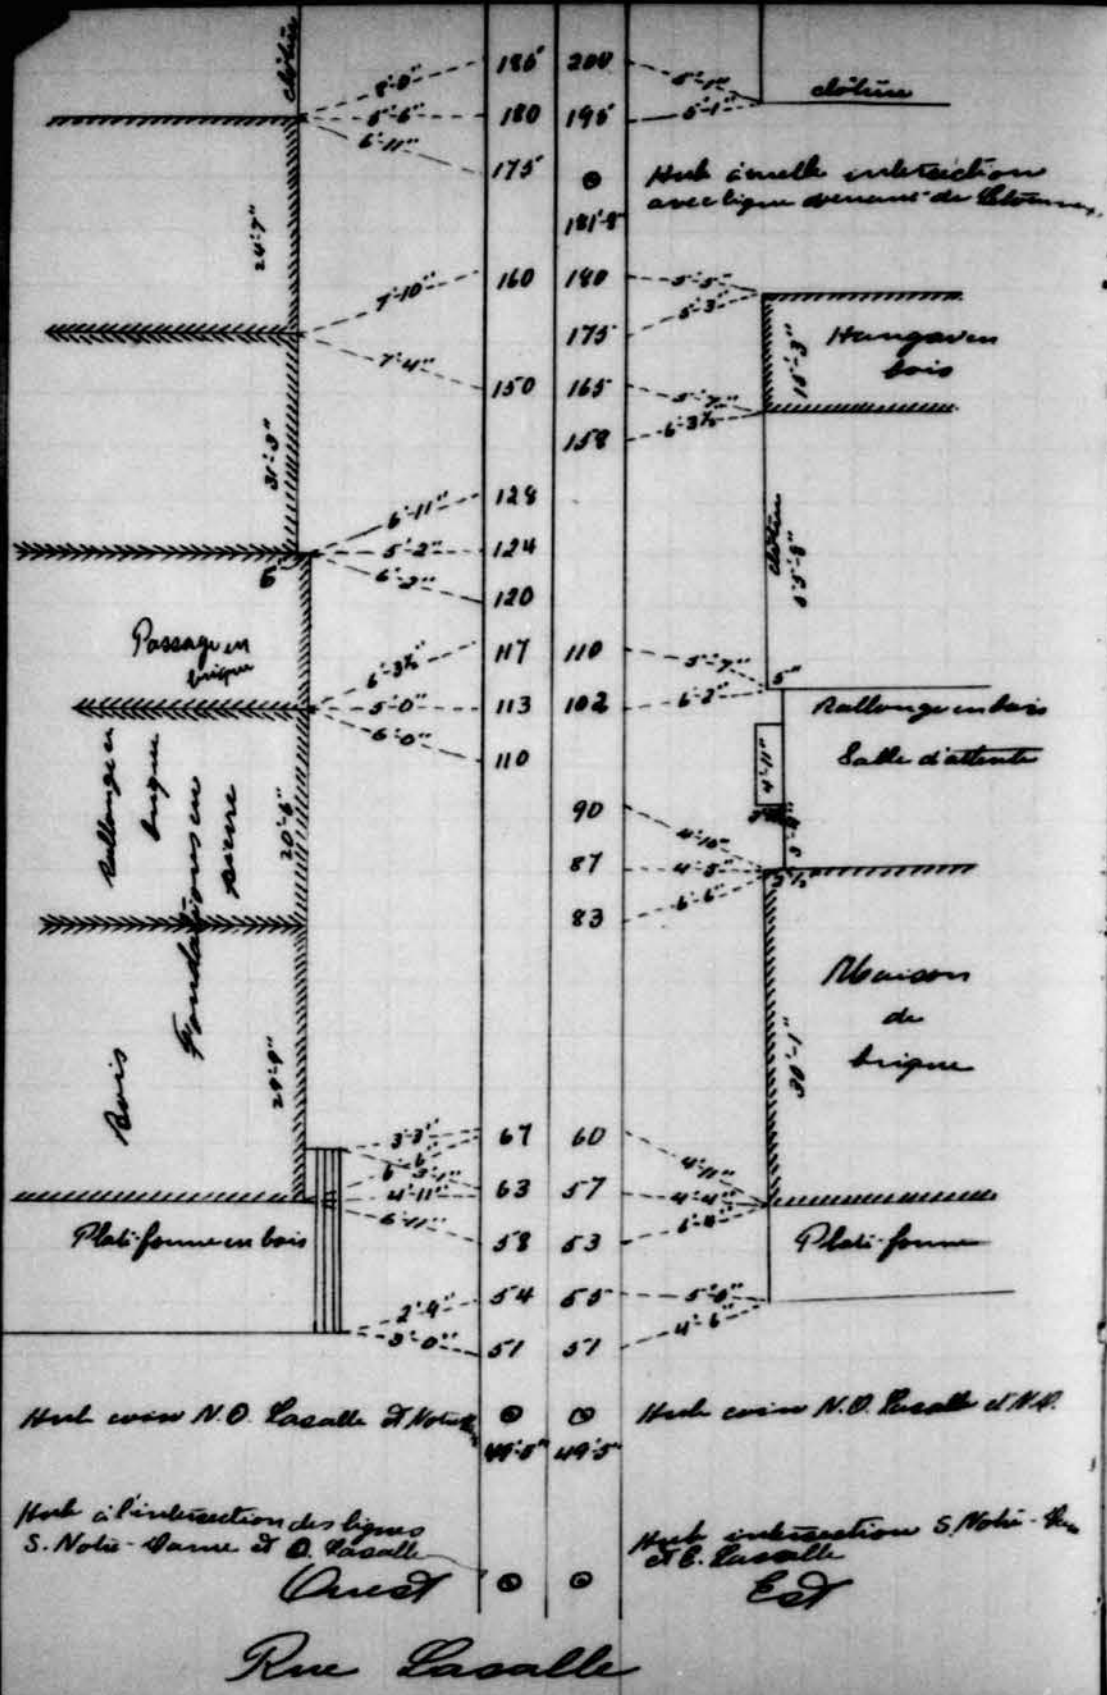 clôture
8'-0"
5'-6"
6'-11"
185
180
175
200
195
181'-8"
5'-1"
5'-1"
clôture
Hub intersection
avec ligne venant de
24'-7"
7'-10"
7'-4"
160
150
180
175
165
158
5'-5"
5'-3"
5'-7"
6'-3½"
Hangar en
bois
31'-3"
6'-11"
5'-2"
128
124
120
clôture
Passage en
brique
6'-3½"
5'-0"
6'-0"
117
113
110
110
102
5'-7"
6'-2"
5"
Rallonge en bois
Salle d'attente
4'-11"
Rallonge en
brique
Fondations en
pierre
20'-6"
90
87
83
4'-10"
4'-5"
6'-6"
Maison
de
brique
30'-1"
Bois
29'-9"
3'-3"
4'-11"
6'-11"
67
63
58
60
57
53
4'-11"
4'-4"
6'-8"
Plate-forme en bois
Plate-forme
2'-9"
3'-0"
54
51
55
51
4'-6"
Hub coin N.O. Lasalle et Notre
49'-5"
49'-5"
Hub coin N.O. Lasalle et N.D.
Hub à l'intersection des lignes
S. Notre-Dame et O. Lasalle
Ouest
Hub intersection S. Notre-Dame
et E. Lasalle
Est
Rue Lasalle